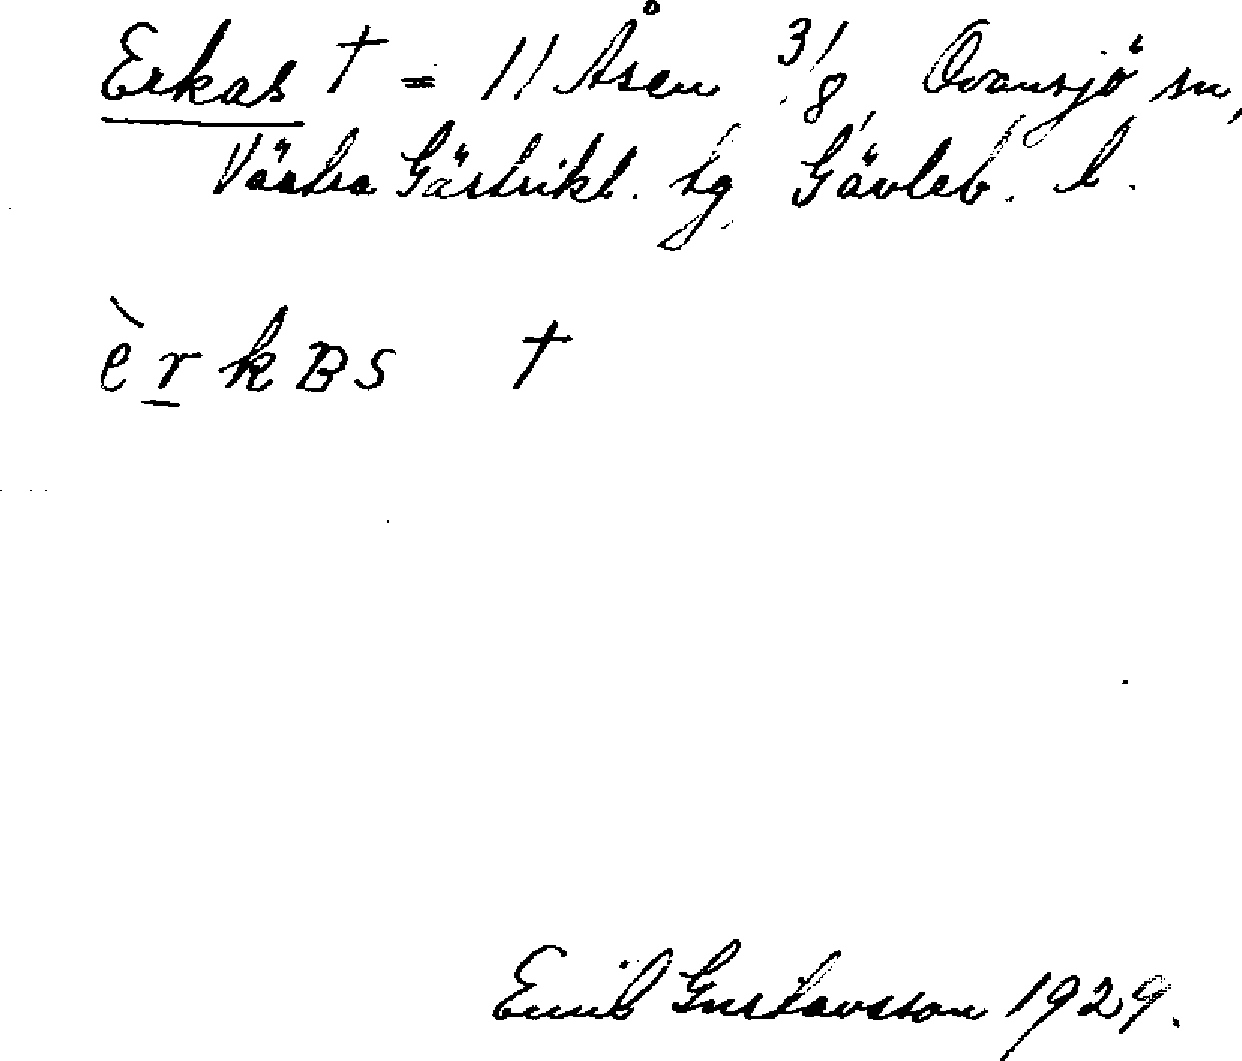 Erkas † = 11 Åsen 3/8, Ovansjö sn,
Västra Gästrikl. tg Gävleb. l.
èrkBS †
Emil Gustavsson 1929.